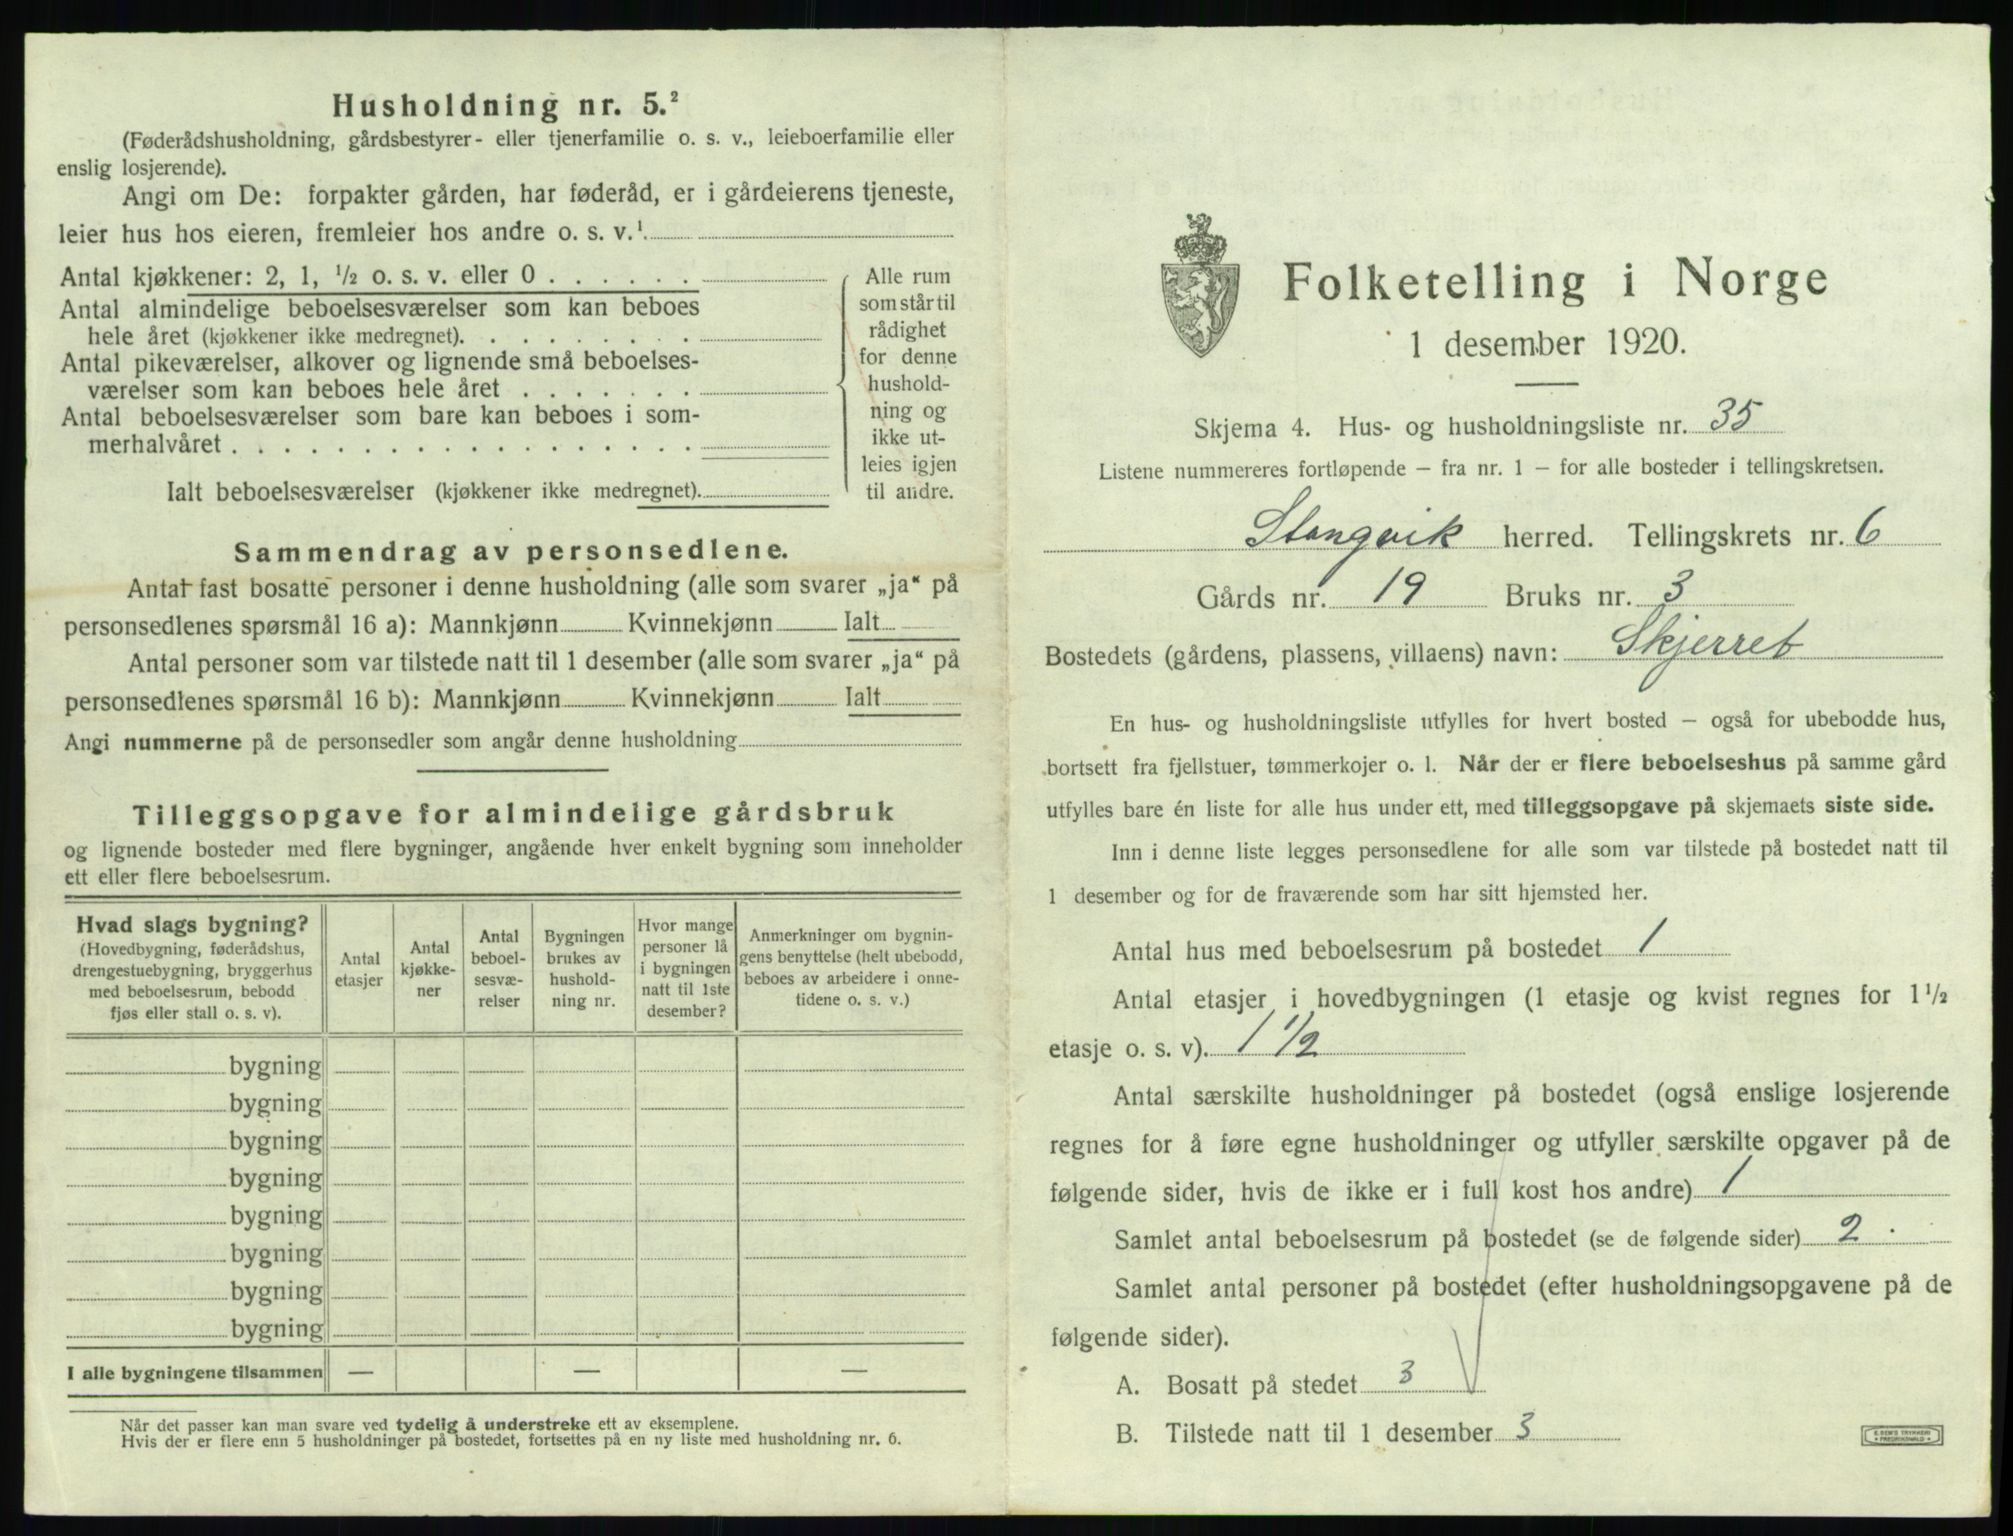 Husholdning nr. 5.²
(Føderådshusholdning, gårdsbestyrer- eller tjenerfamilie o. s. v., leieboerfamilie eller
enslig losjerende).
Angi om De: forpakter gården, har føderåd, er i gårdeierens tjeneste,
leier hus hos eieren, fremleier hos andre o. s. v.¹
Antal kjøkkener: 2, 1, ½ o. s. v. eller 0 . . . . . .
Antal almindelige beboelsesværelser som kan beboes
hele året (kjøkkener ikke medregnet). . . . . . . . .
Antal pikeværelser, alkover og lignende små beboelses-
værelser som kan beboes hele året . . . . . . .
Antal beboelsesværelser som bare kan beboes i som-
merhalvåret . . . . . . . . . . . . . . . . . .
Ialt beboelsesværelser (kjøkkener ikke medregnet).
Alle rum
som står til
rådighet
for denne
hushold-
ning og
ikke ut-
leies igjen
til andre.
Sammendrag av personsedlene.
Antal fast bosatte personer i denne husholdning (alle som svarer „ja“ på
personsedlenes spørsmål 16 a): Mannkjønn Kvinnekjønn Ialt
Antal personer som var tilstede natt til 1 desember (alle som svarer „ja“ på
personsedlenes spørsmål 16 b): Mannkjønn Kvinnekjønn Ialt
Angi nummerne på de personsedler som angår denne husholdning
Tilleggsopgave for almindelige gårdsbruk
og lignende bosteder med flere bygninger, angående hver enkelt bygning som inneholder
ett eller flere beboelsesrum.
Hvad slags bygning?
(Hovedbygning, føderådshus,
drengestuebygning, bryggerhus
med beboelsesrum, bebodd
fjøs eller stall o. s. v).
Antal
etasjer
Antal
kjøkke-
ner
Antal
beboel-
sesvæ-
relser
Bygningen
brukes av
hushold-
ning nr.
Hvor mange
personer lå
i bygningen
natt til 1ste
desember?
Anmerkninger om bygnin-
gens benyttelse (helt ubebodd,
beboes av arbeidere i onne-
tidene o. s. v.)
bygning
bygning
bygning
bygning
bygning
bygning
bygning
bygning
I alle bygningene tilsammen — — —
Når det passer kan man svare ved tydelig å understreke ett av eksemplene.
Hvis der er flere enn 5 husholdninger på bostedet, fortsettes på en ny liste med husholdning nr. 6.
Folketelling i Norge
1 desember 1920.
Skjema 4. Hus- og husholdningsliste nr. 35
Listene nummereres fortløpende – fra nr. 1 – for alle bosteder i tellingskretsen.
Stangvik herred. Tellingskrets nr. 6
Gårds nr. 19 Bruks nr. 3
Bostedets (gårdens, plassens, villaens) navn: Skjerret
En hus- og husholdningsliste utfylles for hvert bosted – også for ubebodde hus,
bortsett fra fjellstuer, tømmerkojer o. l. Når der er flere beboelseshus på samme gård
utfylles bare én liste for alle hus under ett, med tilleggsopgave på skjemaets siste side.
Inn i denne liste legges personsedlene for alle som var tilstede på bostedet natt til
1 desember og for de fraværende som har sitt hjemsted her.
Antal hus med beboelsesrum på bostedet 1
Antal etasjer i hovedbygningen (1 etasje og kvist regnes for 1½
etasje o. s. v). 1 ½
Antal særskilte husholdninger på bostedet (også enslige losjerende
regnes for å føre egne husholdninger og utfyller særskilte opgaver på de
følgende sider, hvis de ikke er i full kost hos andre) 1
Samlet antal beboelsesrum på bostedet (se de følgende sider) 2
Samlet antal personer på bostedet (efter husholdningsopgavene på de
følgende sider).
A. Bosatt på stedet 3
B. Tilstede natt til 1 desember 3